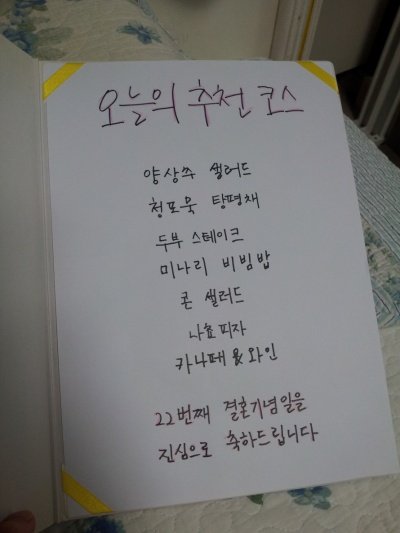 오늘의 추천 코스
양상추 샐러드
청포묵 탕평채
두부 스테이크
미나리 비빔밥
콘 샐러드
나쵸피자
카나페 & 와인
22번째 결혼기념일을
진심으로 축하드립니다